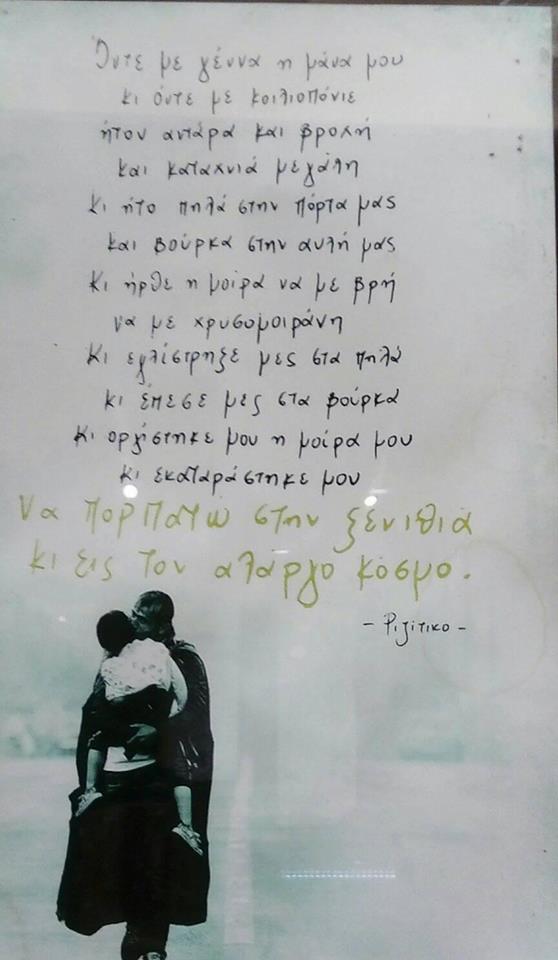 Όντε με γέννα η μάνα μου
κι όντε με κοιλιοπόνιε
ήτον αντάρα και βροχή
και καταχνιά μεγάλη
Κι ήτο πηλά στην πόρτα μας
και βούρκα στην αυλή μας
Κι ήρθε η μοίρα να με βρή
να με χρυσομοιράνη
Κι εγλίστρηξε μες στα πηλά
κι έπεσε μες στα βούρκα
Κι οργίστηκε μου η μοίρα μου
κι εκαταράστηκε μου
Να πορπατώ στην ξενιθιά
κι εις τον αλάργο κόσμο.
- Ριζίτικο -